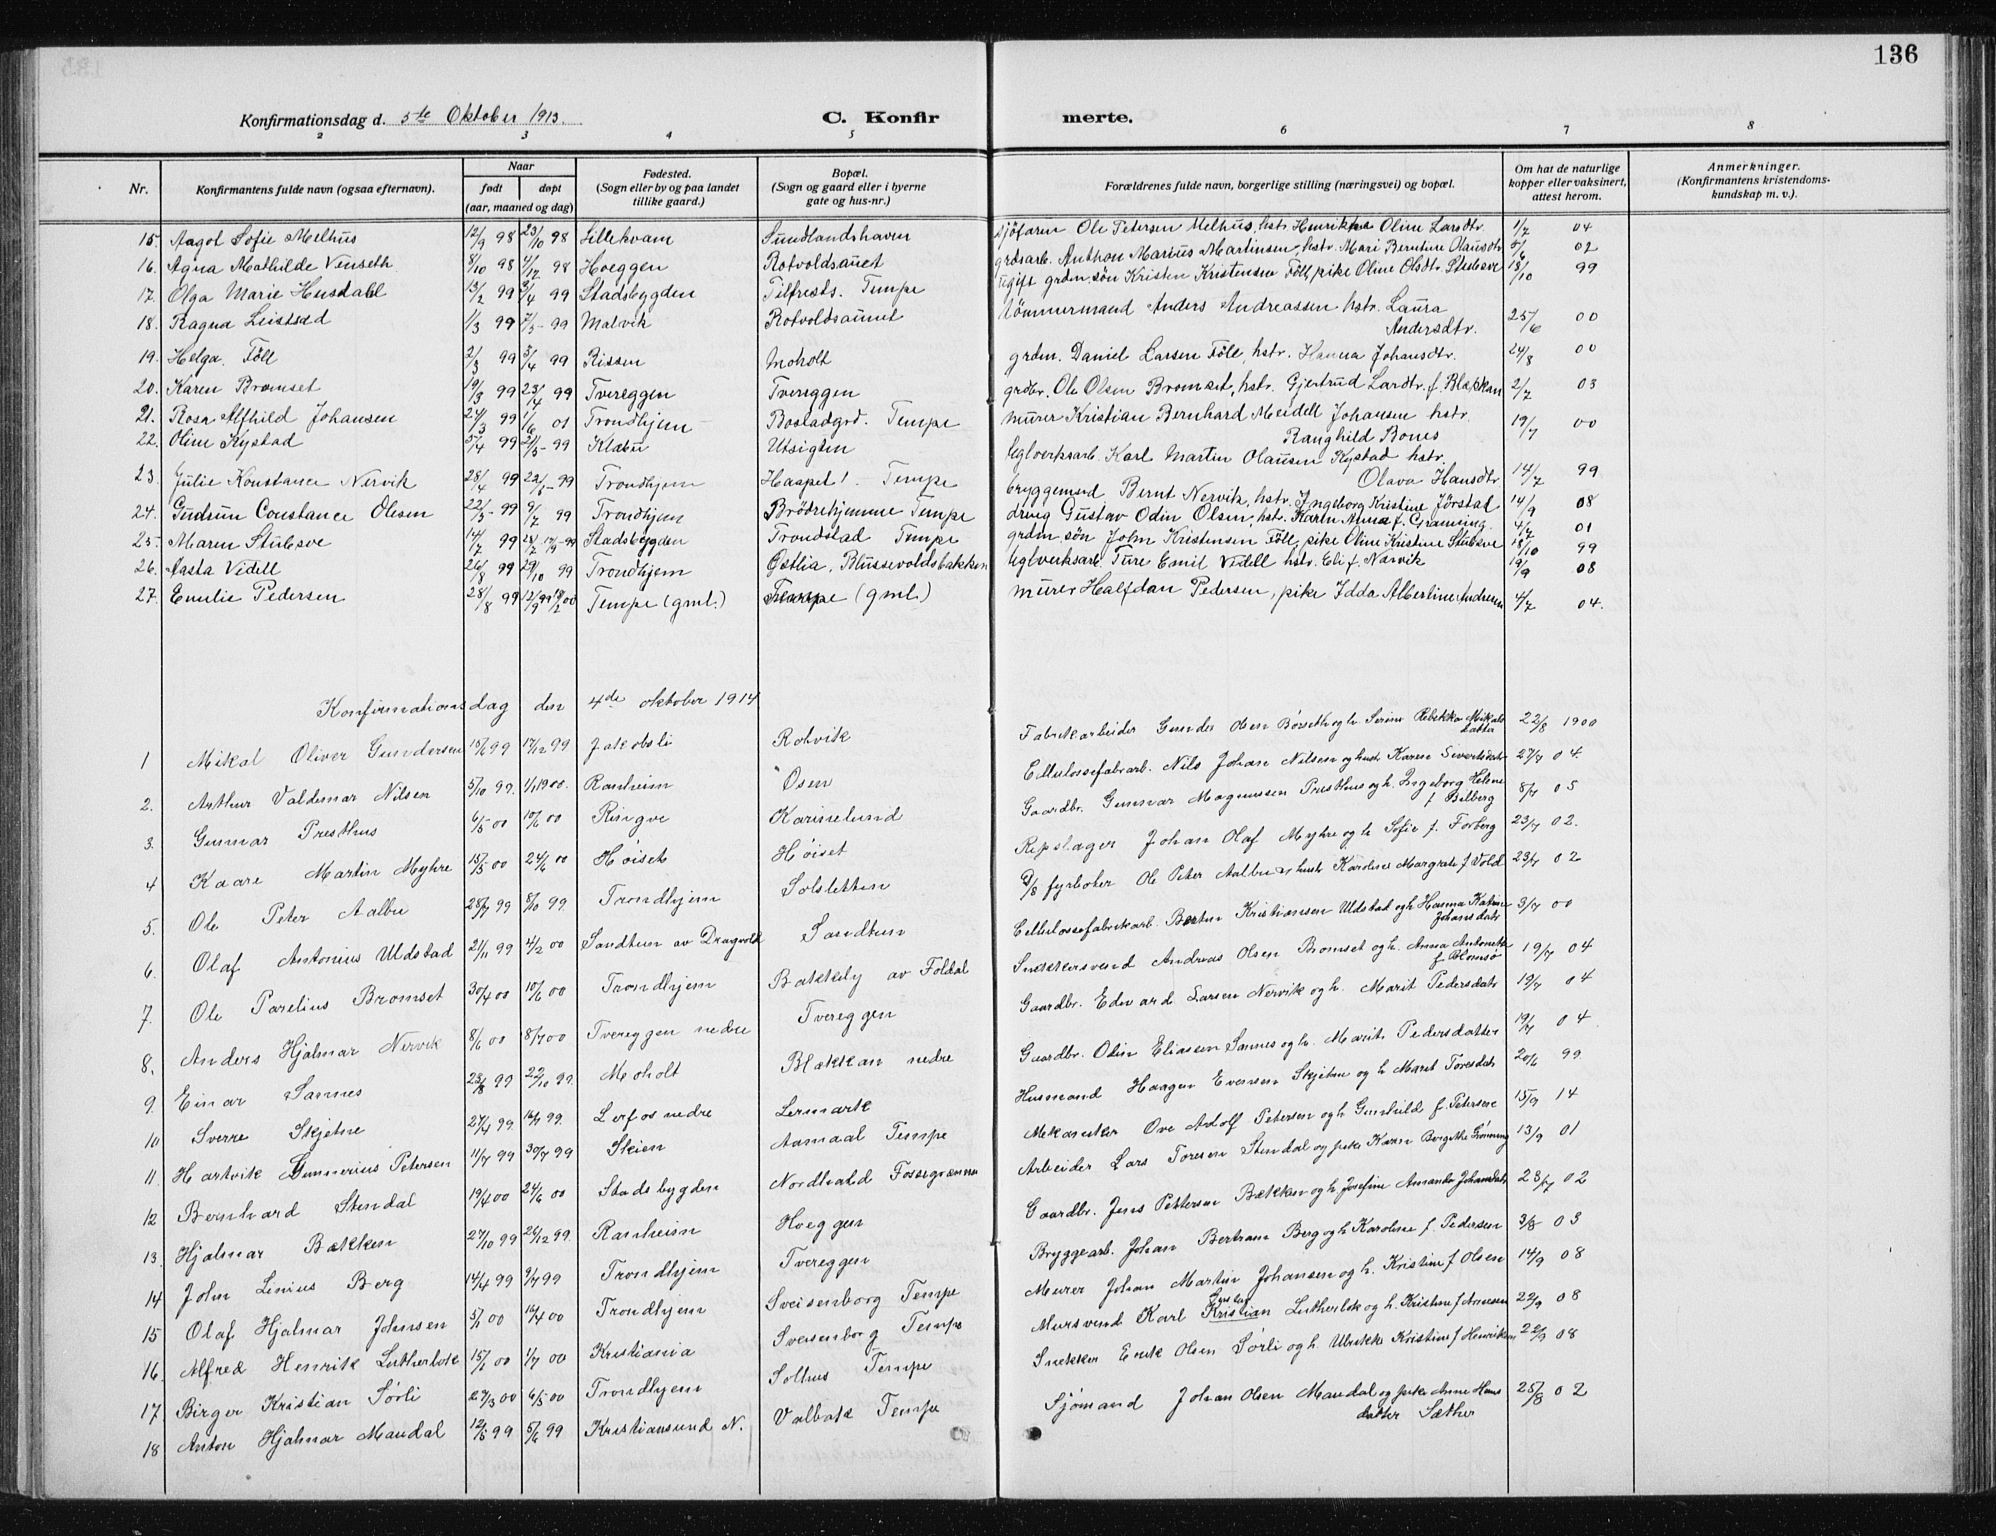 136
Konfirmationsdag d. 5te Oktober 1913.
C. Konfirmerte.
2 3 4 5 6 7 8
Nr.
Konfirmantens fulde navn (ogsaa efternavn).
Naar
født døpt
(aar, maaned og dag)
Fødested.
(Sogn eller by og paa landet
tillike gaard.)
Bopæl.
(Sogn og gaard eller i byerne
gate og hus-nr.)
Forældrenes fulde navn, borgerlige stilling (næringsvei) og bopæl.
Om hat de naturlige
kopper eller vaksinert,
attest herom.
Anmerkninger.
(Konfirmantens kristendoms-
kundskap m. v.).
15. Aagot Sofie Melhus 12/9 98 23/10 98 Lillekvam Sundlandshaven sjøfaren Ole Petersen Melhus, hstr. Henrikke Oline Larsdtr. 1/7 04
16. Agna Mathilde Vinseth 8/10 98 4/12 98 Hoeggen Rotvoldsaunet grdsarb. Anthon Marius Martinsen, hstr. Mari Berntine Olausdtr. 5/6 02
17. Olga Marie Husdahl 13/2 99 3/4 99 Stadsbygden Tilfredst. Tempe ugift grdm. søn Kristen Kristensen Föll, pike Oline Olsdtr. Stubsve 18/10 99
18. Ragna Leistad 1/3 99 7/5 99 Malvik Rotvoldsaunet tömmermand Anders Andreassen hstr. Laura
Andersdtr. 25/6 00
19. Helga Föll 2/3 99 3/4 99 Rissen Moholt grdm. Daniel Larsen Föll, hstr. Hanna Johansdtr. 24/8 00
20. Karen Bromset 19/3 99 23/4 99 Tvereggen Tvereggen grdbr. Ole Olsen Bromset, hstr. Gjertrud Larsdtr. f. Blækkan 2/7 03
21. Rosa Alfhild Johansen 24/3 99 1/6 01 Trondhjem Bostadgrd. Tempe murer Kristian Bernhard Meidell Johansen hstr.
Ranghild Bones 19/7 00
22. Oline Kystad 5/4 99 21/5 99 Klæbu Utsigten teglverksarb. Karl Martin Olausen Kystad hstr.
Olava Hansdtr. 14/7 99
23. Julie Konstance Nervik 28/4 99 22/5 99 Trondhjem Haapet 1. Tempe bryggemed Bernt Nervik, hstr. Ingeborg Kristine Jørstad 14/9 08
24. Gudrun Constance Olesen 22/5 99 9/7 99 Trondhjem Brödrehjemme Tempe dreng Gustav Odin Olsen, hstr. Karen Anna f. Granning 4/7 01
25. Maren Stubsve 14/7 99 Stadsbygden Trondstad Tempe grdm. søn John Kristensen Föll, pike Oline Kristine Stubsve 18/10 99
26. Aasta Videll 26/8 99 29/10 99 Trondhjem Østlia, Blussevoldsbakken teglverksarb. Ture Emil Videll hstr. Eli f. Narvik 19/9 08
27. Emilie Pedersen 28/8 99 12/9 99 18/2 00 Tempe (gml.) Tempe (gml.) murer Halfdan Pedersen, pike Idda Albertine Andresen 4/7 04.
Konfirmationsdag den 4de oktober 1914
1 Mikal Oliver Gundersen 17/12 99 Jakobsli Rotvik Fabrikarbeider Gunder Olsen Børseth og h. Serine Rebekka Mikals
datter 22/8 1900
2. Arthur Valdemar Nilsen 5/10 99. 1/1 1900. Ranheim Osen Cellulosefabarb. Nils Johan Nilsen og hust. Karen Sivertsdatr 27/7 04.
3. Gunnar Presthus 6/5 00 10/6 00 Ringve Karinelund Gaardbr. Gunnar Magnussen Presthus og h. Ingeborg Helene
f Belberg 8/7 05
4 Kaare Martin Myhre 15/5 00 24/6 00 Høiset Høiset Repslager Johan Olaf Myhre og h Sofie f. Forberg 23/7 02.
5. Ole Peter Aalbu 28/7 99 8/10 99. Trondhjem Solsletten D/S fyrbøter Ole Peter Aalbu og hust. Karoline Margrete f Vold 23/7 02
6. Olaf Antonius Uldstad 21/11 99 4/2 00 Sandtun av Dragvold Sandtun Cellulosefabrikarb. Bertin Kristiansen Uldstad og h Hanna Katrine
Johansdatr 3/7 00
7. Ole Parelius Bromset 30/4 00 10/6 00 Trondhjem Bakkely av Foldal Snekkersvend Andreas Olsen Bromset og h. Anna Antonette
f. Blomsø 19/7 04
8. Anders Hjalmar Nervik 8/6 00 8/7 00 Tvereggen nedre Tvereggen Gaardbr. Edvard Larsen Nervik og h. Marit Pedersdatr 19/7 04
9. Einar Sannes 23/8 99 22/10 99. Moholt Blækkan nedre Gaardbr. Odin Eliassen Sannes og h. Marit Pedersdatter 19/7 04.
10 Sverre Skjetne 27/4 99. 16/7 99. Lerfos nedre Lermark Husmand Haagen Evensen Skjetne og h Marit Toresdatr 20/6 99.
11. Hartvik Gunnerius Petersen 11/7 99 30/7 99 Skien Aamaal Tempe Mekaniker Ove Adolf Petersen og h Gunhild f. Petersen 15/9 14
12 Bernhard Stendal 19/4 00 24/6 00 Stadsbygden Nordtvald Fossegrænnen Arbeider Lars Toresen Stendal og pike Karen Bergitte Grønning 13/9 01
13. Hjalmar Bækken 27/10 99 26/12 99. Ranheim Hoeggen Gaardbr. Jens Pettersen Bækken og h Josefine Amanda Johansdatr 23/7 02
14 John Linius Berg 14/4 99 9/7 99 Trondhjem Tvereggen Bryggearb. Johan Bertram Berg og h Karoline f. Pedersen 3/8 03
15 Olaf Hjalmar Johnsen 5/1 00 16/4 00 Trondhjem Sveisenborg Tempe Murer Johan Martin Johansen og h. Kristine f Olsen 14/9 08
16. Alfred Henrik Lutherbok 15/1 00 1/7 00 Kristiania Sveisenborg Tempe Mursvend Karl Kristian Gustav Lutherbok og h. Kristine f Arnesen 22/9 08
17 Birger Kristian Sørli 27/3 00 6/5 00 Trondhjem Solhus Tempe Snekker Erik Olsen Sørli og h. Ulrikke Kristine f Henriksen 22/9 08
18 Anton Hjalmar Mandal 12/5 99 5/6 99 Kristiansund N. Valbak Tempe Sjømand Johan Olsen Mandal og pike Anne Hans
datter Sæther 25/8 02